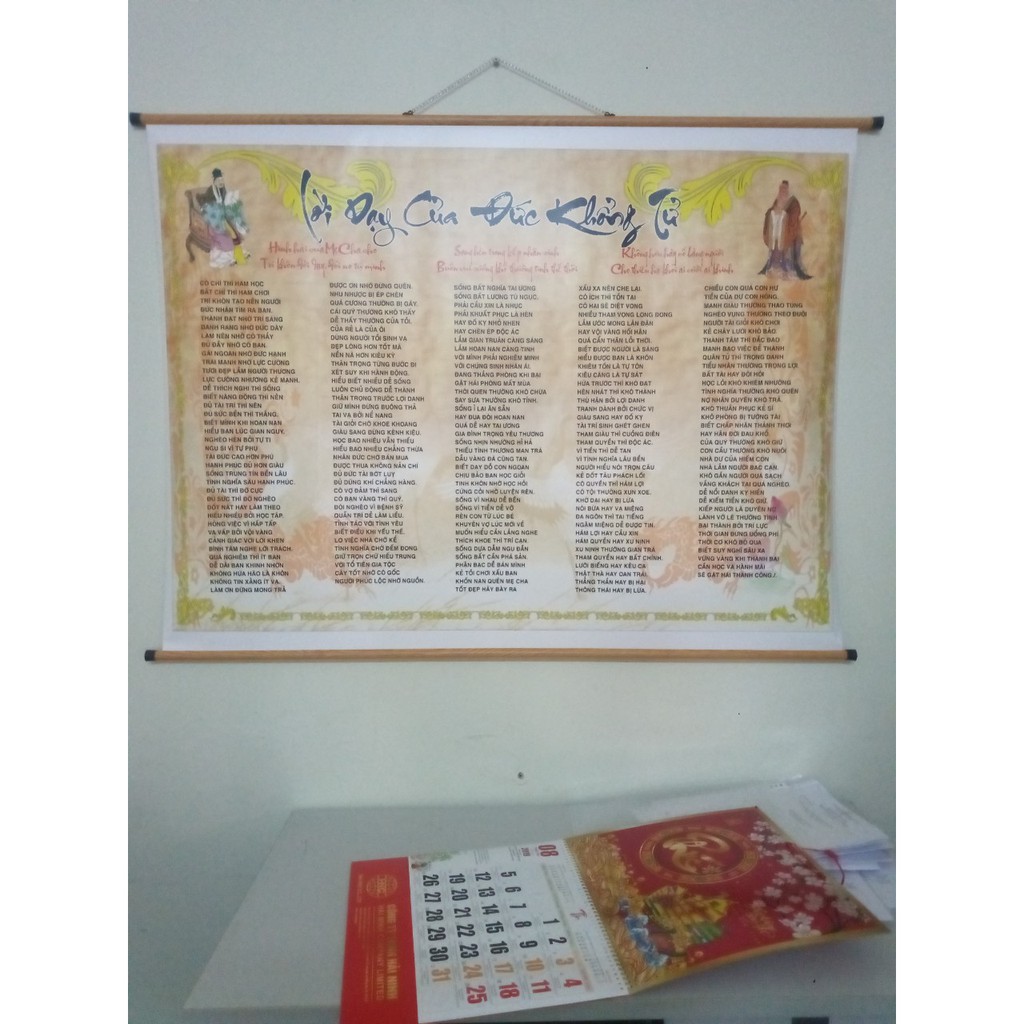 Lời Dạy Của Đức Khổng Tử
CÓ CHÍ THÌ HAM HỌC
BẤT CHÍ THÌ HAM CHƠI
TRÍ KHÔN TẠO NÊN NGƯỜI
ĐỨC NHÂN TÌM RA BẠN.
THÀNH ĐẠT NHỜ TRÍ SÁNG
DANH RẠNG NHỜ ĐỨC DÀY
LÀM NÊN NHỜ CÓ THẦY
ĐỦ ĐẦY NHỜ CÓ BẠN.
GÁI NGOAN NHỜ ĐỨC HẠNH
TRAI MẠNH NHỜ LỰC CƯỜNG
TƯƠI ĐẸP LẮM NGƯỜI THƯƠNG.
LỰC CƯỜNG NHƯỜNG KẺ MẠNH.
DỄ THÍCH NGHI THÌ SỐNG
BIẾT NĂNG ĐỘNG THÌ NÊN
ĐỦ TÀI TRÍ THÌ NÊN
ĐỦ SỨC BỀN THÌ THẮNG.
BIẾT MÌNH KHI HOẠN NẠN
HIỂU BẠN LÚC GIAN NGUY.
NGHÈO HÈN BỞI TỰ TI
NGU SI VÌ TỰ PHỤ
TÀI ĐỨC CAO HƠN PHÚ
HẠNH PHÚC ĐỦ HƠN GIÀU
SỐNG TRUNG TÍN BỀN LÂU
TÌNH NGHĨA SÂU HẠNH PHÚC.
ĐỦ TÀI THÌ ĐỠ CỰC
ĐỦ SỨC THÌ ĐỠ NGHÈO
DỐT NÁT HAY LÀM THEO
HIỂU NHIỀU BỞI HỌC TẬP.
HỎNG VIỆC VÌ HẤP TẤP
VA VẤP BỞI VỘI VÀNG
CẢNH GIÁC VỚI LỜI KHEN
BÌNH TÂM NGHE LỜI TRÁCH.
QUÁ NGHIÊM THÌ ÍT BẠN
DỄ DÃI BẠN KHINH NHỜN
KHÔNG HỨA HÃO LÀ KHÔN
KHÔNG TIN XẰNG ÍT VẠ.
LÀM ƠN ĐỪNG MONG TRẢ
ĐƯỢC ƠN NHỚ ĐỪNG QUÊN.
NHU NHƯỢC BỊ ÉP CHÈN
QUÁ CƯƠNG THƯỜNG BỊ GÃY.
CÁI QUÝ THƯỜNG KHÓ THẤY
DỄ THẤY THƯỜNG CỦA TỒI.
CỦA RẺ LÀ CỦA ÔI
DÙNG NGƯỜI TỒI SINH VẠ
ĐẸP LÒNG HƠN TỐT MÃ
NẾN NÃ HƠN KIÊU KỲ
THẬN TRỌNG TỪNG BƯỚC ĐI
XÉT SUY KHI HÀNH ĐỘNG.
HIỂU BIẾT NHIỀU DỄ SỐNG
LUÔN CHỦ ĐỘNG DỄ THÀNH
THẬN TRỌNG TRƯỚC LỢI DANH
GIỮ MÌNH ĐỪNG BUÔNG THẢ
TAI VẠ BỞI NỂ NANG
TÀI GIỎI CHỚ KHOE KHOANG
GIÀU SANG ĐỪNG KÊNH KIỆU.
HỌC BAO NHIÊU VẪN THIẾU
HIỂU BAO NHIÊU CHẲNG THỪA
NHÂN ĐỨC CHỚ BÁN MUA
ĐƯỢC THUA KHÔNG NẢN CHÍ
ĐỦ ĐỨC TÀI BỚT LỤY
ĐỦ DŨNG KHÍ CHẲNG HÀNG.
CÓ VỢ ĐẢM THÌ SANG
CÓ BẠN VÀNG THÌ QUÝ.
ĐÓI NGHÈO VÌ BỆNH SỸ
QUẪN TRÍ DỄ LÀM LIỀU.
TỈNH TÁO VỚI TÌNH YÊU
BIẾT ĐIỀU KHI YẾU THẾ.
LO VIỆC NHÀ CHỚ KỂ
TÌNH NGHĨA CHỚ ĐẾM ĐONG
GIỮ TRỌN CHỮ HIẾU TRUNG
VỚI TỔ TIÊN GIA TỘC
CÂY TỐT NHỜ CÓ GỐC
NGƯỜI PHÚC LỘC NHỜ NGUỒN.
SỐNG BẤT NGHĨA TAI ƯƠNG
SỐNG BẤT LƯƠNG TÙ NGỤC.
PHẢI CẦU XIN LÀ NHỤC
PHẢI KHUẤT PHỤC LÀ HÈN
HAY ĐỐ KỴ NHỎ NHEN
HAY CHÈN ÉP ĐỘC ÁC
LẮM GIAN TRUÂN CÀNG SÁNG
LẮM HOẠN NẠN CÀNG TINH
VỚI MÌNH PHẢI NGHIÊM MINH
VỚI CHÚNG SINH NHÂN ÁI.
ĐANG THẮNG PHÒNG KHI BẠI
GẶT HÁI PHÒNG MẤT MÙA
THÓI QUEN THƯỜNG KHÓ CHỪA
SAY SƯA THƯỜNG KHÓ TỈNH.
SỐNG Ỉ LẠI ĂN SẴN
HAY ĐUA ĐÒI HOẠN NẠN
QUÁ DỄ HAY TAI ƯƠNG
GIA ĐÌNH TRỌNG YÊU THƯƠNG
SỐNG NHỊN NHƯỜNG HỈ HẢ
THIẾU TÌNH THƯƠNG MAN TRÁ
DẪU VÀNG ĐÁ CŨNG TAN.
BIẾT DẠY DỖ CON NGOAN
CHỊU BẢO BAN HỌC GIỎI
TINH KHÔN NHỜ HỌC HỎI
CỨNG CỎI NHỜ LUYỆN RÈN.
SỐNG VÌ NHAU DỄ BỀN
SỐNG VÌ TIỀN DỄ VỠ
RÈN CON TỪ LÚC BÉ
KHUYÊN VỢ LÚC MỚI VỀ
MUỐN HIỂU CẦN LẮNG NGHE
THÍCH KHOE THÌ TRÍ CẠN
SỐNG DỰA DẪM NGU ĐẦN
SỐNG BẤT CẦN PHÁ SẢN.
PHẬN BẠC DỄ BÁN MÌNH
KẺ TỒI CHƠI XẤU BẠN
KHỐN NẠN QUÊN MẸ CHA
TỐT ĐẸP HÃY BÀY RA
XẤU XA NÊN CHE LẠI.
CÓ ÍCH THÌ TỒN TẠI
CÓ HẠI SẼ DIỆT VONG
NHIỀU THAM VỌNG LONG ĐONG
LẮM ƯỚC MONG LẬN ĐẬN
HAY VỘI VÀNG HỐI HẬN
QUÁ CẨN THẬN LỖI THỜI.
BIẾT ĐƯỢC NGƯỜI LÀ SÁNG
HIỂU ĐƯỢC BẠN LÀ KHÔN
KHIÊM TỐN LÀ TỰ TÔN
KIÊU CĂNG LÀ TỰ SÁT
HỨA TRƯỚC THÌ KHÓ ĐẠT
HÈN NHÁT THÌ KHÓ THÀNH
THÙ HẬN BỞI LỢI DANH
TRANH DÀNH BỞI CHỨC VỊ
GIÀU SANG HAY ĐỐ KỴ
TÀI TRÍ SINH GHÉT GHEN
THAM GIÀU THÌ CUỒNG ĐIÊN
THAM QUYỀN THÌ ĐỘC ÁC.
VÌ TIỀN THÌ DỄ TAN
VÌ TÌNH NGHĨA LÂU BỀN
NGƯỜI HIỂU NÓI TRỌN CÂU
KẺ DỐT TÂU PHÁCH LỐI
CÓ QUYỀN THÌ HÁM LỢI
CÓ TỘI THƯỜNG XUN XOE.
KHỜ DẠI HAY BỊ LỪA
NÓI BỪA HAY VẠ MIỆNG
ĐA NGÔN THÌ TAI TIẾNG
NGẬM MIỆNG DỄ ĐƯỢC TIN.
HÁM LỢI HAY CẦU XIN
HÁM QUYỀN HAY XU NỊNH
XU NỊNH THƯỜNG GIAN TRÁ
THAM QUYỀN HAY BẤT CHÍNH.
LƯỜI BIẾNG HAY KÊU CA
THẬT THÀ HAY OAN TRÁI.
THẲNG THẮN HAY BỊ HẠI
THÔNG THÁI HAY BỊ LỪA.
CHIỀU CON QUÁ CON HƯ
TIỀN CỦA DƯ CON HỎNG.
MẠNH GIÀU THƯỜNG THAO TÚNG
NGHÈO VỤNG THƯỜNG THEO ĐUÔI
NGƯỜI TÀI GIỎI KHÓ CHƠI
KẺ CHÂY LƯỜI KHÓ BẢO
THÀNH TÂM THÌ ĐẮC ĐẠO
MẠNH BẠO VIỆC DỄ THÀNH
QUÂN TỬ THÌ TRỌNG DANH
TIỂU NHÂN THƯỜNG TRỌNG LỢI
BẤT TÀI HAY ĐÒI HỎI
HỌC LỎI KHÓ KHIÊM NHƯỜNG
TÌNH NGHĨA THƯỜNG KHÓ QUÊN
NỢ NHÂN DUYÊN KHÓ TRẢ.
KHÓ THUẦN PHỤC KẺ SĨ
KHÓ PHÒNG BỊ TƯỚNG TÀI
BIẾT CHẤP NHẬN THẢNH THƠI
HAY HẬN ĐỜI ĐAU KHỔ.
CỦA QUÝ THƯỜNG KHÓ GIỮ
CON CẦU THƯỜNG KHÓ NUÔI
NHÀ DƯ CỦA HIẾM CON
NHÀ LẮM NGƯỜI BẠC CẠN.
KHÓ GẦN NGƯỜI QUÁ SẠCH
VẮNG KHÁCH TẠI QUÁ NGHÈO.
DỄ NỔI DANH KỴ HIỀN
DỄ KIẾM TIỀN KHÓ GIỮ.
KIẾP NGƯỜI LÀ DUYÊN NỢ
LÀNH VỠ LẼ THƯỜNG TÌNH
ĐẠI THÀNH BỞI TRÍ LỰC
THỜI GIAN ĐỪNG UỔNG PHÍ.
THỜI CƠ KHÓ BỎ QUA
BIẾT SUY NGHĨ SÂU XA
VỮNG VÀNG KHI THÀNH BẠI
CẦN HỌC VÀ HĂNG HÁI
SẼ GẶT HÁI THÀNH CÔNG./.
08
1 2 3 4
5 6 7 8 9 10 11
12 13 14 15 16 17 18
19 20 21 22 23 24 25
26 27 28 29 30 31